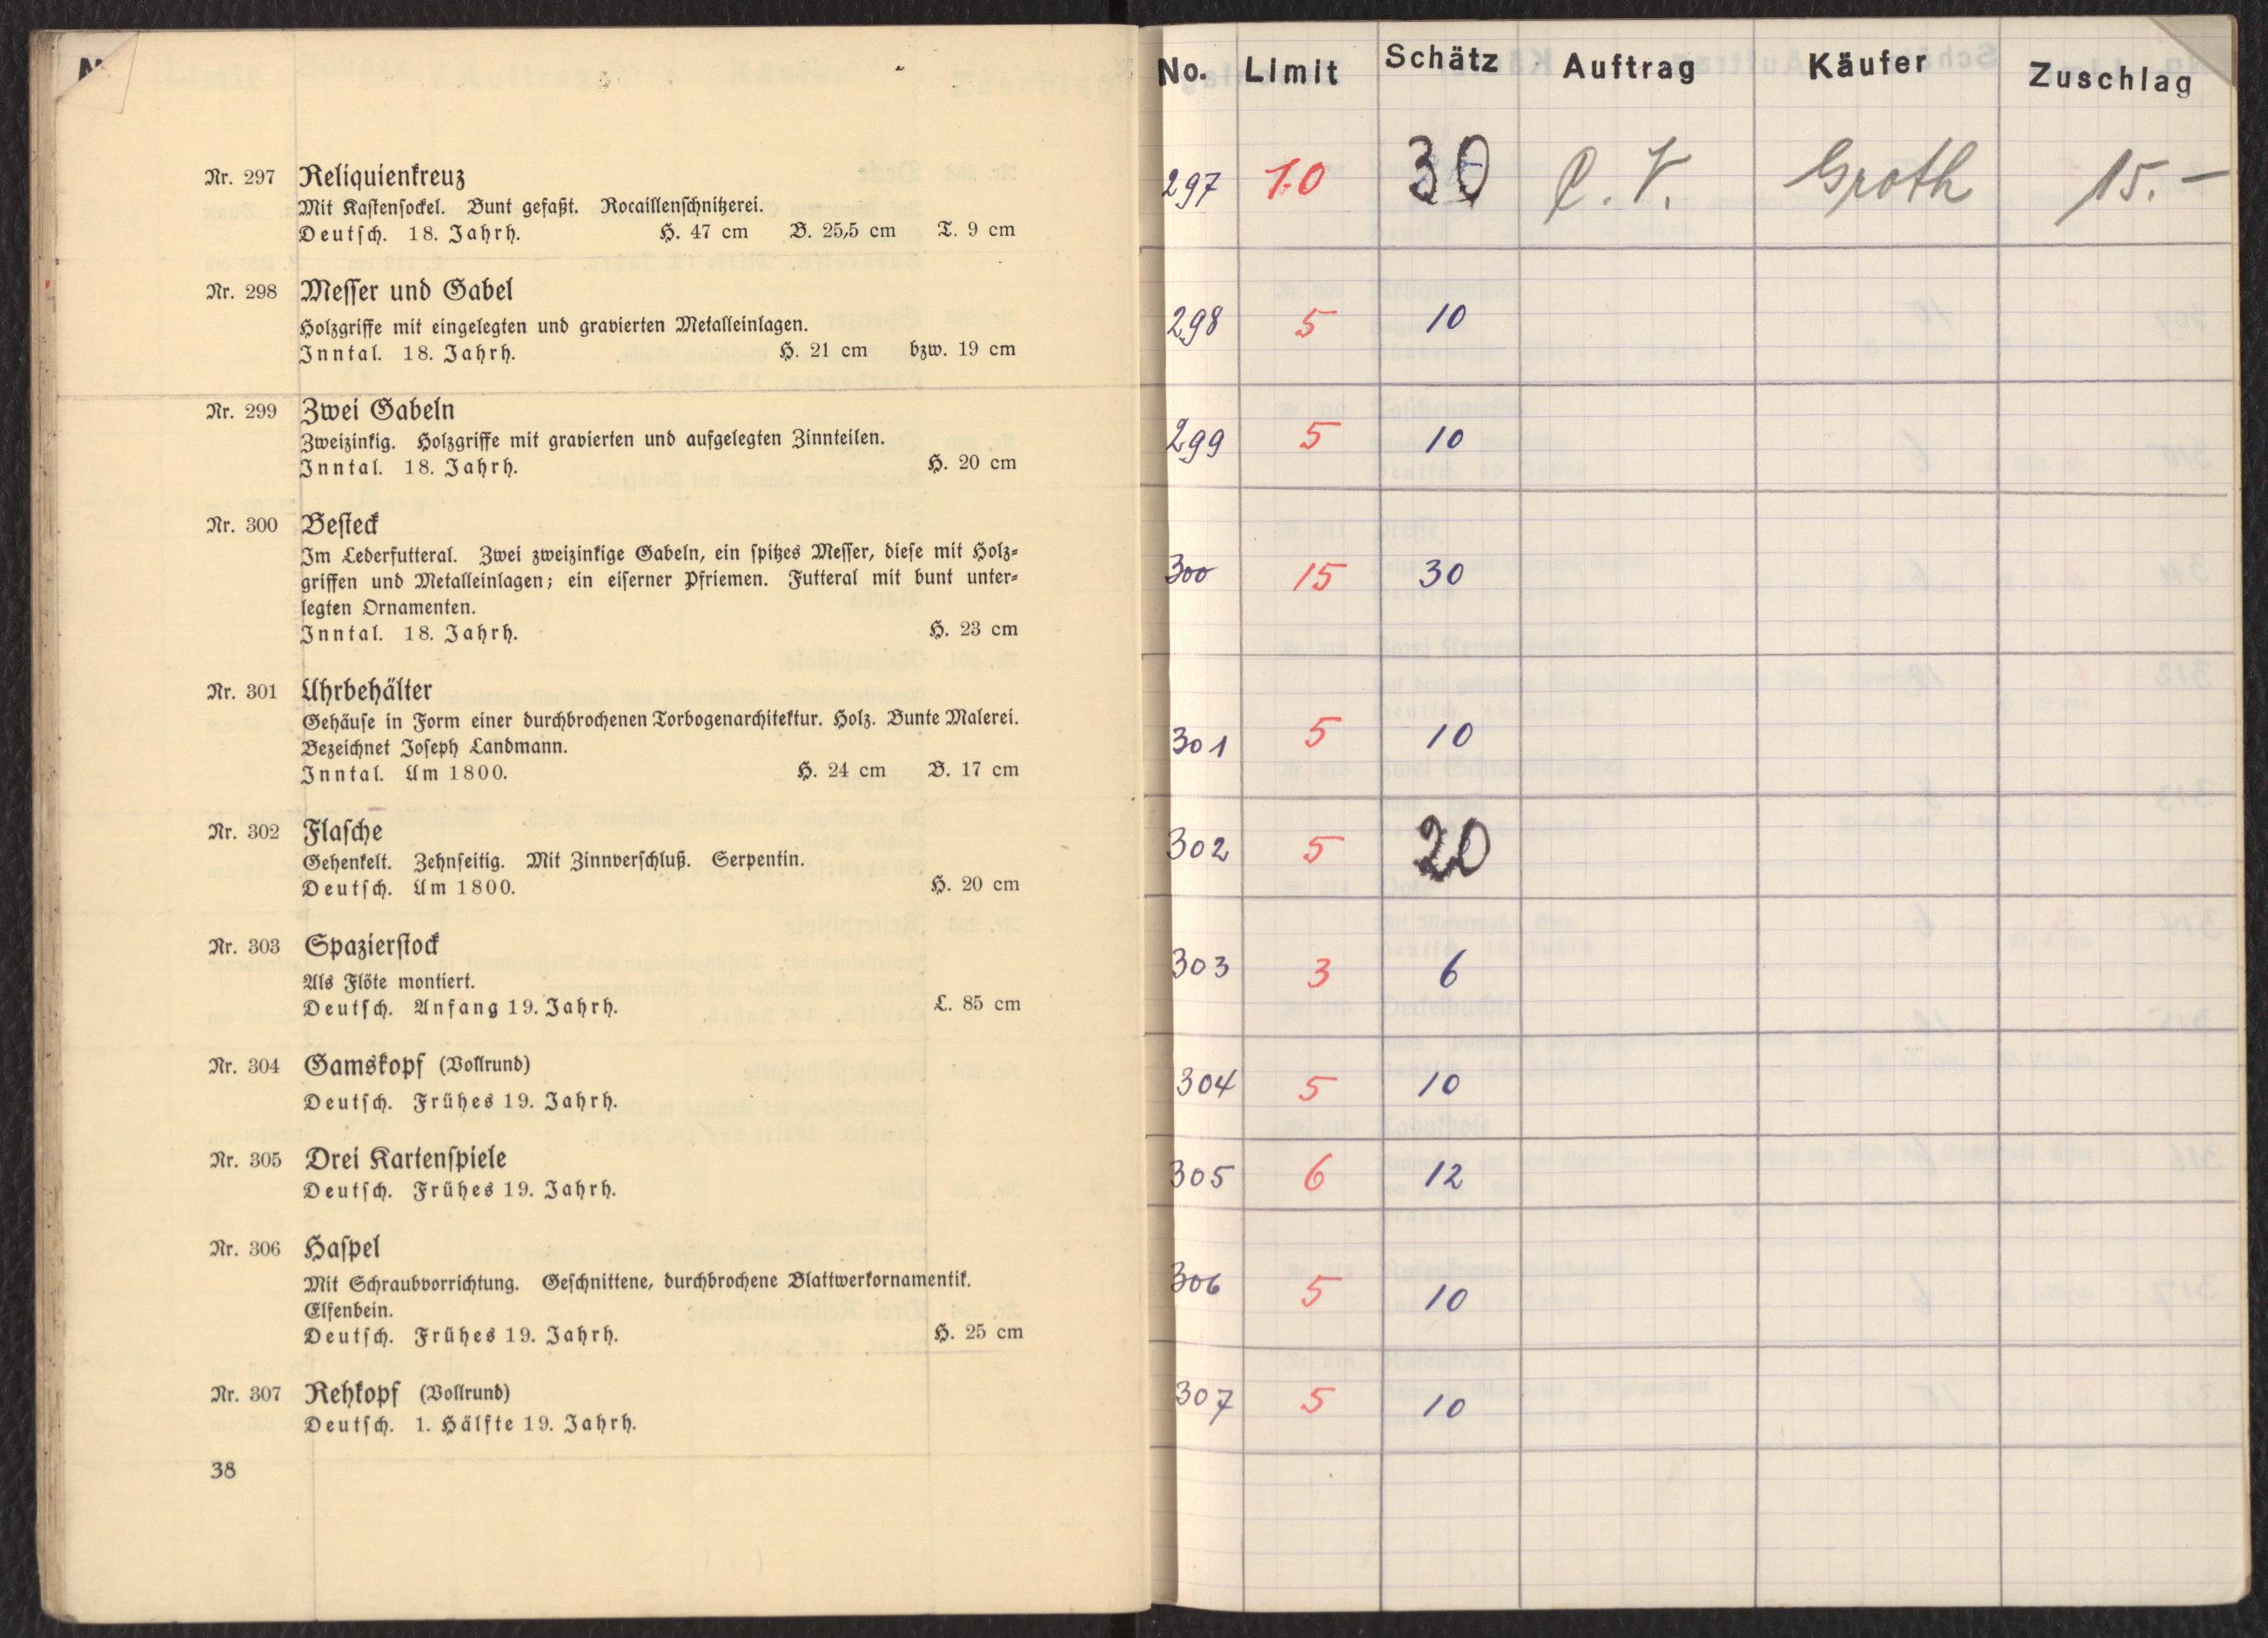 Nr. 297 Reliquienkreuz
Mit Kastensockel. Bunt gefaßt. Rocaillenschnitzerei.
Deutsch. 18. Jahrh. H. 47 cm B. 25,5 cm T. 9 cm
Nr. 298 Messer und Gabel
Holzgriffe mit eingelegten und gravierten Metalleinlagen.
Inntal. 18. Jahrh. H. 21 cm bzw. 19 cm
Nr. 299 Zwei Gabeln
Zweizinkig. Holzgriffe mit gravierten und aufgelegten Zinnteilen.
Inntal. 18. Jahrh. H. 20 cm
Nr. 300 Besteck
Im Lederfutteral. Zwei zweizinkige Gabeln, ein spitzes Messer, diese mit Holz-
griffen und Metalleinlagen; ein eiserner Pfriemen. Futteral mit bunt unter-
legten Ornamenten.
Inntal. 18. Jahrh. H. 23 cm
Nr. 301 Uhrbehälter
Gehäuse in Form einer durchbrochenen Torbogenarchitektur. Holz. Bunte Malerei.
Bezeichnet Joseph Landmann.
Inntal. Um 1800. H. 24 cm B. 17 cm
Nr. 302 Flasche
Gehenkelt. Zehnseitig. Mit Zinnverschluß. Serpentin.
Deutsch. Um 1800. H. 20 cm
Nr. 303 Spazierstock
Als Flöte montiert.
Deutsch. Anfang 19. Jahrh. L. 85 cm
Nr. 304 Gamskopf (Vollrund)
Deutsch. Frühes 19. Jahrh.
Nr. 305 Drei Kartenspiele
Deutsch. Frühes 19. Jahrh.
Nr. 306 Haspel
Mit Schraubvorrichtung. Geschnittene, durchbrochene Blattwerkornamentik.
Elfenbein.
Deutsch. Frühes 19. Jahrh. H. 25 cm
Nr. 307 Rehkopf (Vollrund)
Deutsch. 1. Hälfte 19. Jahrh.
38
No. Limit Schätz Auftrag Käufer Zuschlag
297 10 30 C. V. Groth 15.—
298 5 10
299 5 10
300 15 30
301 5 10
302 5 20
303 3 6
304 5 10
305 6 12
306 5 10
307 5 10